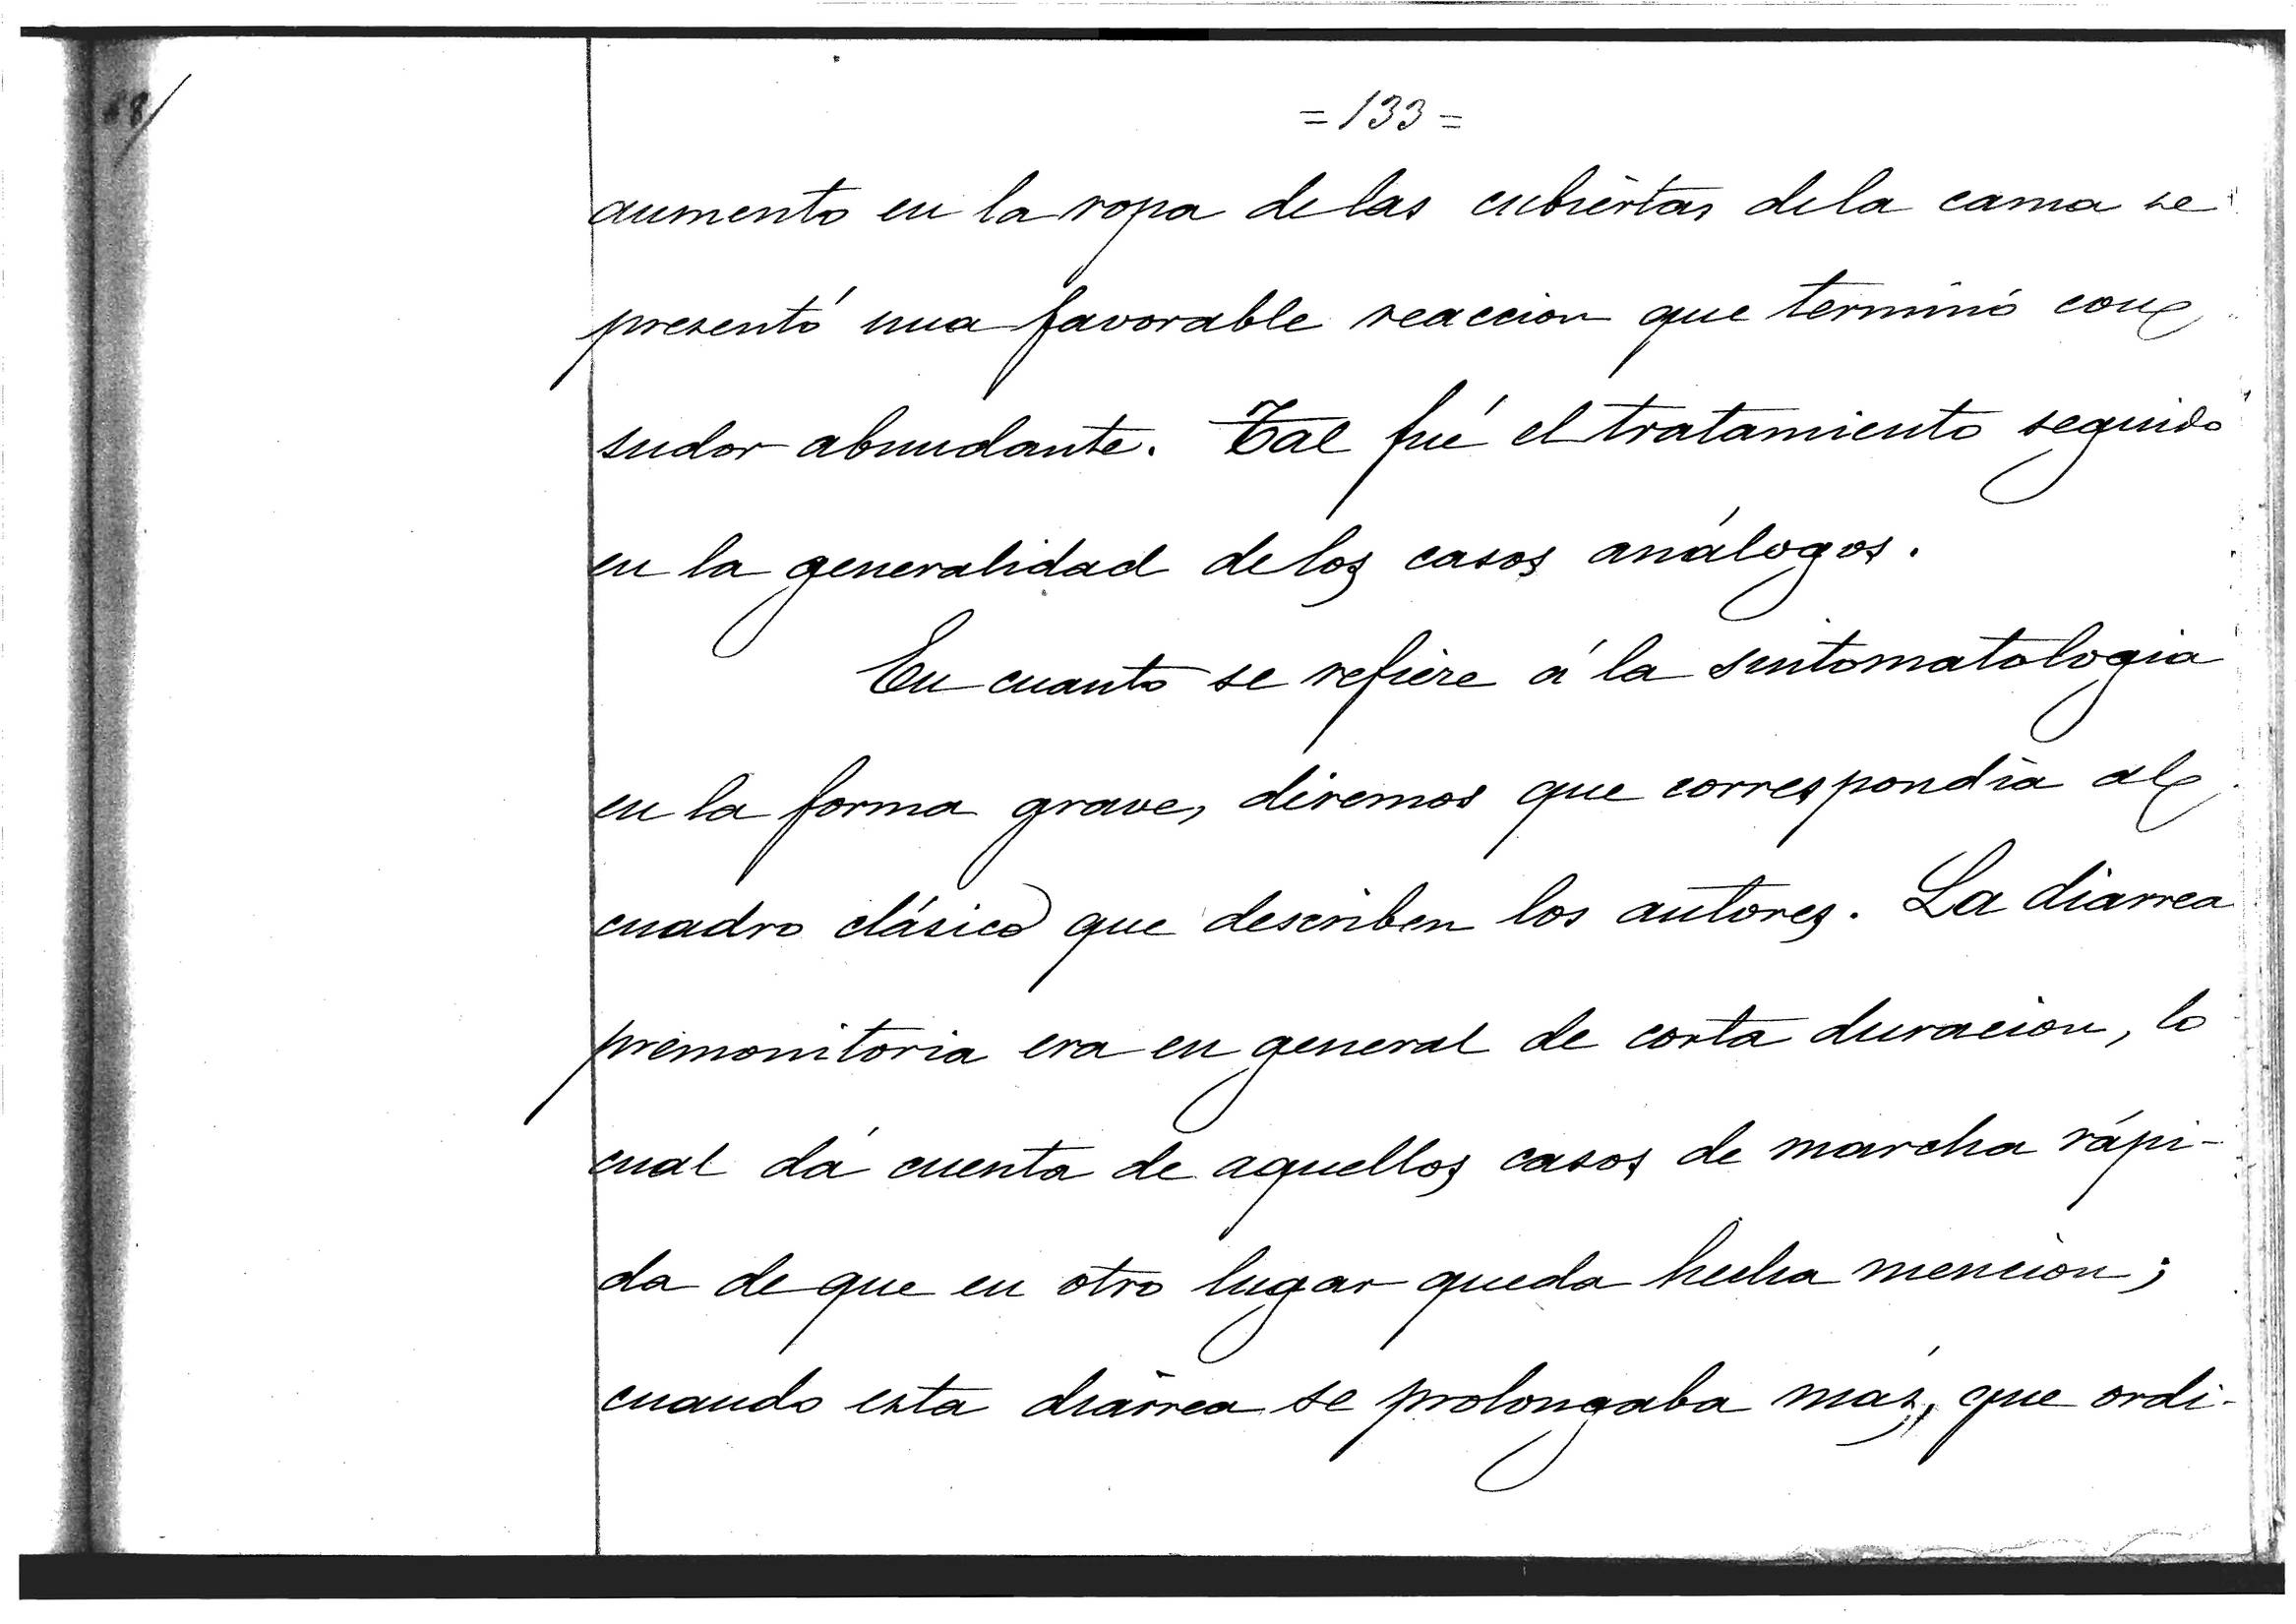 = 133 =
aumento en la ropa de las cubiertas de la cama se
presentó una favorable reaccion que terminó con
sudor abundante. Tal fué el tratamiento seguido
en la generalidad de los casos análogos.
En cuanto se refiere á la sintomatologia
en la forma grave, diremos que correspondia al
cuadro clásico que describen los autores. La diarrea
premonitoria era en general de corta duracion, lo
cual dá cuenta de aquellos casos de marcha rápi-
da de que en otro lugar queda hecha mencion;
cuando esta diarrea se prolongaba más, que ordi-